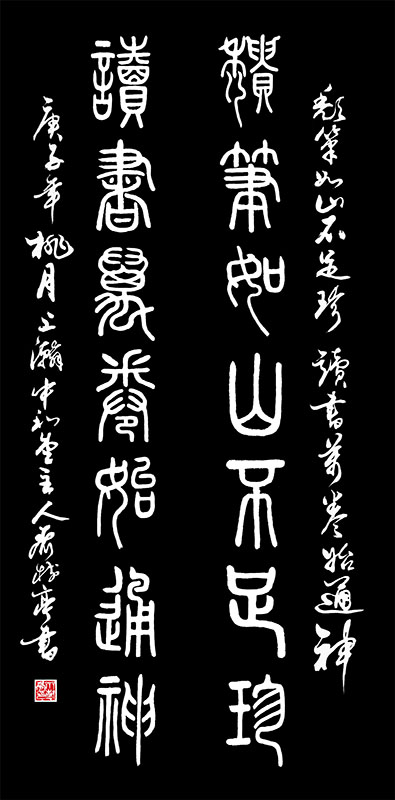 頹筆如山不足珍 讀書萬卷始通神
穨筆如山不足珍
讀書萬卷始通神
庚子年桃月上瀚中和堂主人樹亭書